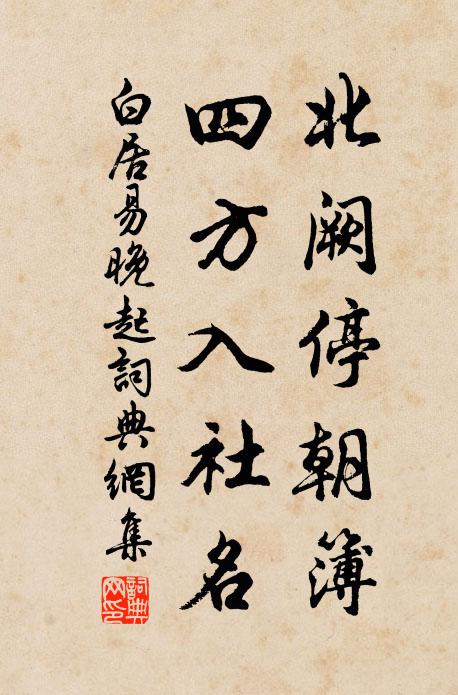 北阙停朝簿
四方入社名
白居易晚起詞典網集
詞典网印